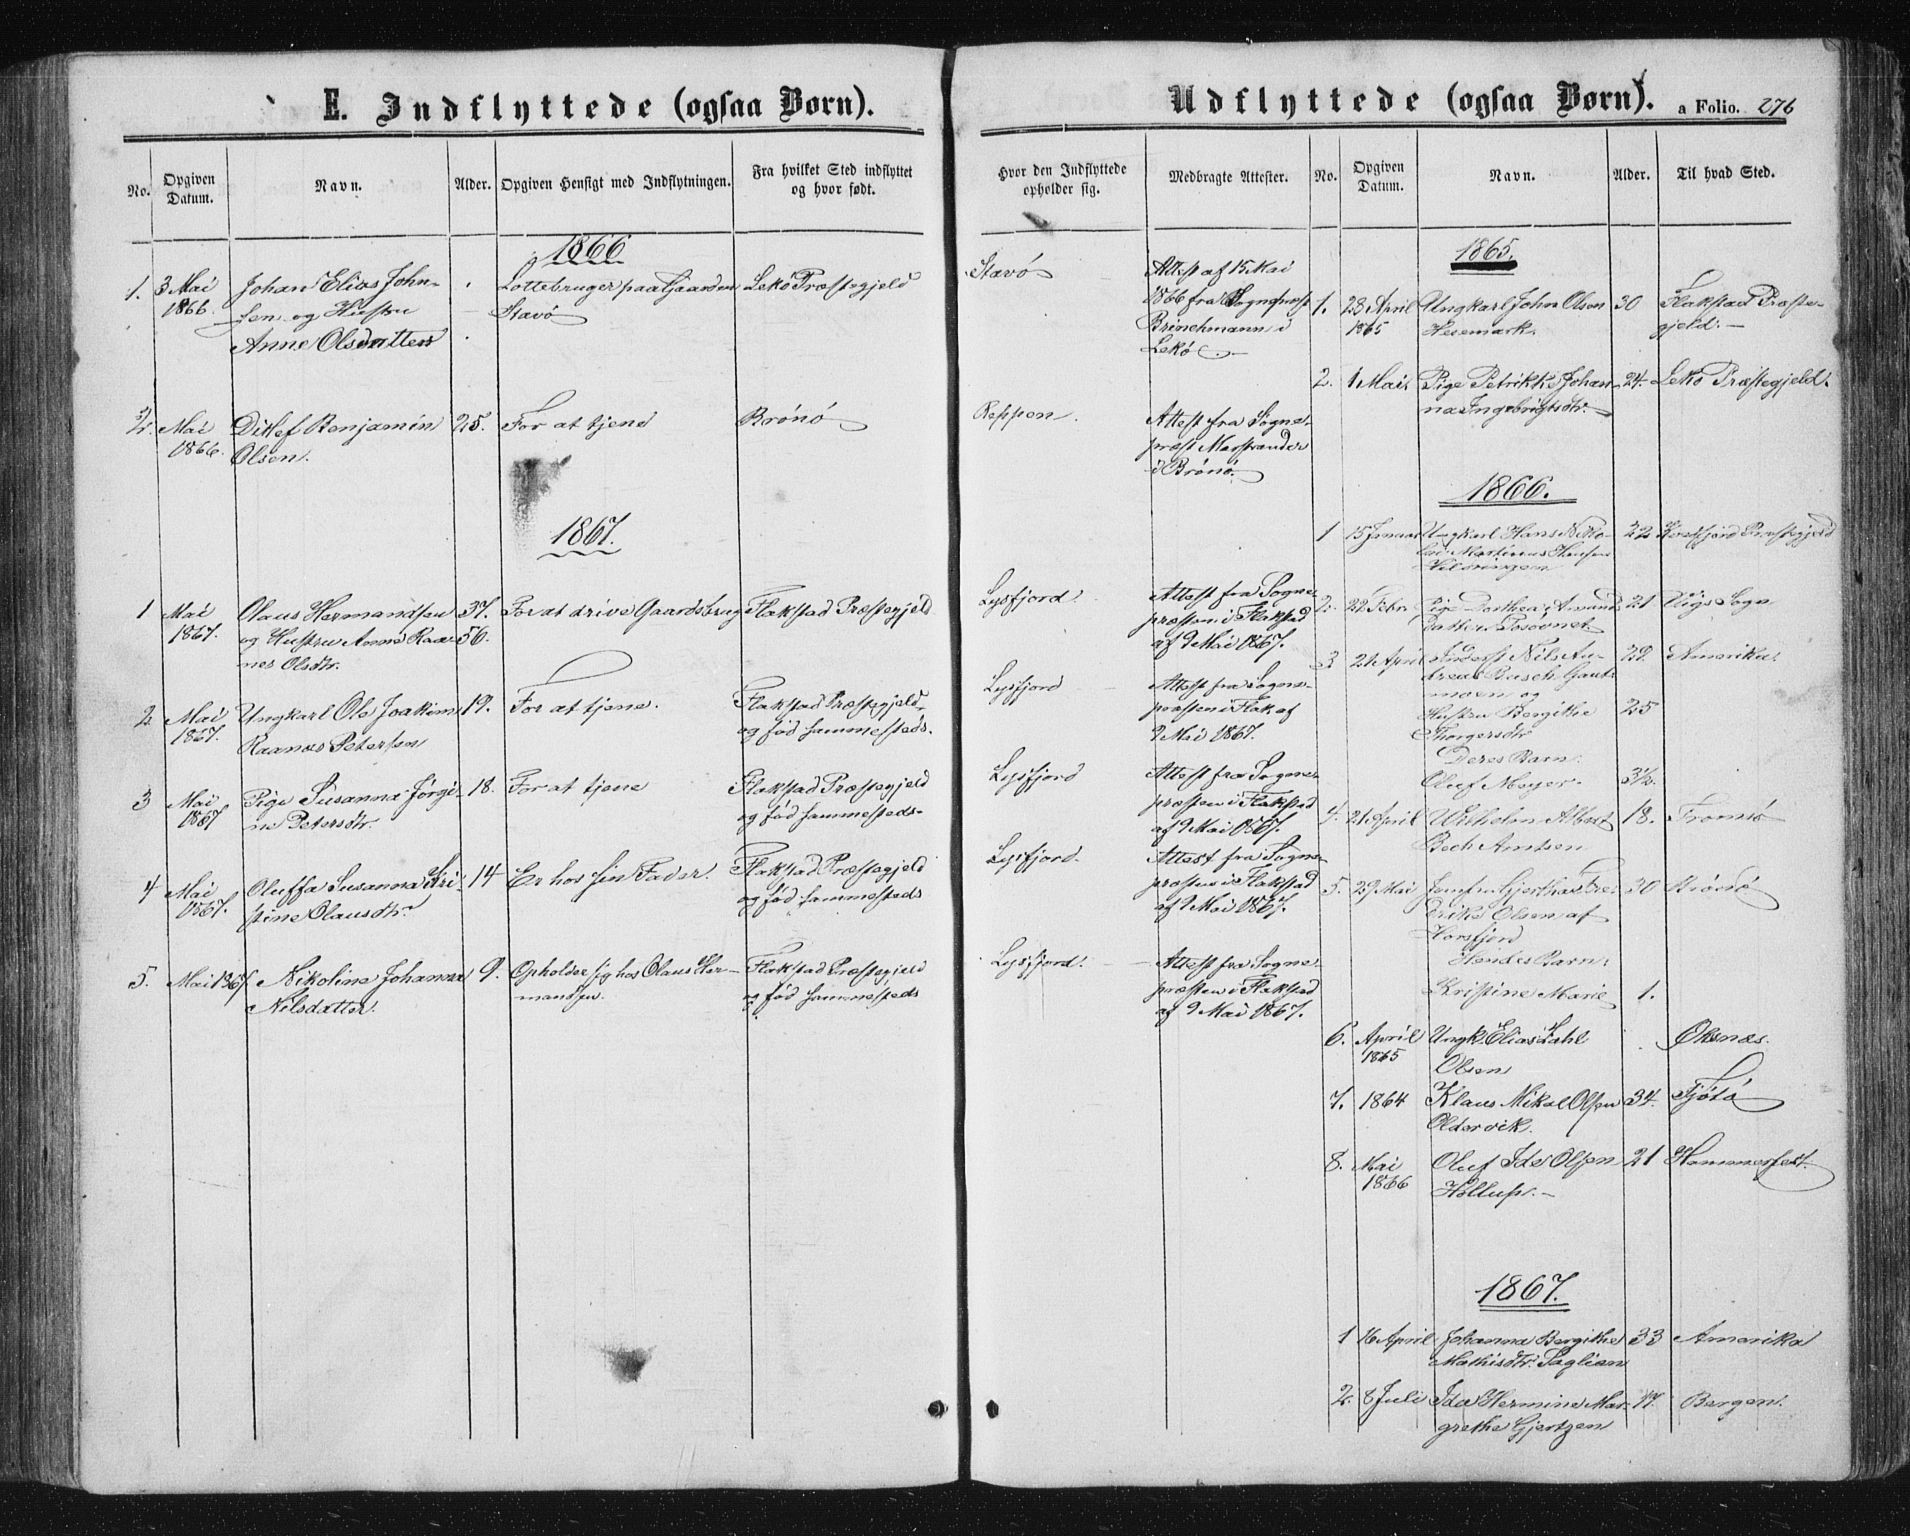 E. Indflyttede (ogsaa Børn).
No.
Opgiven
Datum.
Navn.
Alder.
Opgiven Hensigt med Indflytningen.
Fra hvilket Sted indflyttet
og hvor født.
1866
1.
3 Mai
1866.
Johan Elias John-
sen og Hustru
Anne Olsdatter
Lottebruger paa Gaarden
Stavø
Lekø Præstegjeld
2.
Mai
1866.
Ditlef Benjamin
Olsen.
25.
For at tjene
Brønø
1867.
1
Mai
1867.
Olaus Hermandsen
og Hustru Anne
Olsdtr.
37.
56.
For at drive Gaardsbrug
Flakstad Præstegjeld
2
Mai
1867.
Ungkarl Ole Joakim
Raanæs Petersen
19.
For at tjene.
Flakstad Præstegjeld
og fød sammesteds.
3
Mai
1867
Pige Susanna Jørgi-
ne Petersdtr.
18.
For at tjene
Flakstad Præstegjeld
og fød sammesteds.
4
Mai
1867.
Oluffa Susanna Kri-
stine Olausdtr.
14
Er hos sin Fader.
Flakstad Præstegjeld
og fød sammesteds
5.
Mai 1867.
Nikoline Johanna
Nilsdatter.
9.
Opholder sig hos Olaus Her-
mandsen.
Flakstad Præstegjeld
og fød sammesteds
Udflyttede (ogsaa Børn).
a Folio. 276
Hvor den Indflyttede
opholder sig.
Medbragte Attester.
No.
Opgiven
Datum.
Navn.
Alder.
Til hvad Sted.
Stavø
Attest af 15 Mai
1866 fra Sognepræst
Brinchmann i
Lekø.
Reppen.
Attest fra Sogne-
præst Marstrander
i Brønø.
Lysfjord.
Attest fra Sogne-
præsten i Flakstad
af 9 Mai 1867.
Lysfjord
Attest fra Sogne-
præsten i Flak. af
9 Mai 1867.
Lysfjord
Attest fra Sogne-
præsten i Flakstad
af 9 Mai 1867.
Lysfjord.
Attest fra Sogne-
præsten i Flakstad
af 9 Mai 1867.
Lysfjord.
Attest fra Sogne-
præsten i Flakstad
af 9 Mai 1867.
1865.
1.
28 April
1865
Ungkarl John Olsen
Hesemark.
30
Flakstad Præste-
gjeld.
2.
1 Mai.
Pige Petrikke Johan-
na Ingebrigtsdtr.
24.
Lekø Præstegjeld.
1866.
1
15 Januar
Ungkarl Hans Niko-
lai Martinus Hansen
Hildringen
22
Præstegjeld
2.
22 Febr.
Pige Dorthea Amund
datter
21
Vigs Sogn
3
21 April
Nils An-
dreas Busch Gaut-
moen og
Hustru Bergithe
Thorgersdtr.
Deres Barn.
Oluf Meyer.
29.
25
3½.
Amerika.
4.
21 April
Wilhelm Albert
Bech Arntsen
18.
Tromsø
5.
29 Mai
Fre-
drike Olsen af
Horsfjord
Hendes Barn.
Kristine Marie
30
1.
6.
April
1865
Ungk. Elias Zahl
Olsen
Øksnæs.
7.
1864
Klaus Mikal Olsen
Oldervik.
34.
Tjøtø
8.
Mai
1866
Oluf Ides Olsen
Hollup.
21
Hammerfest.
1867.
1
16 April
Johanna Bergithe
Mathisdtr.
33
Amerika
2.
8 Juli
Ida Hermine Mar-
grethe Gjertzen
17.
Bergen.